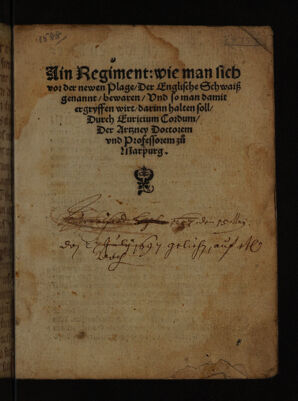 Ain Regiment: wie man sich
vor der newen Plage/ Der Englische Schwaiß
genannt/ bewaren/ Und so man damit
ergryffen wirt/ darinn halten soll/
Durch Euricium Cordum/
Der Artzney Doctorem
und Professorem zů
Marpurg.
den 15 May.